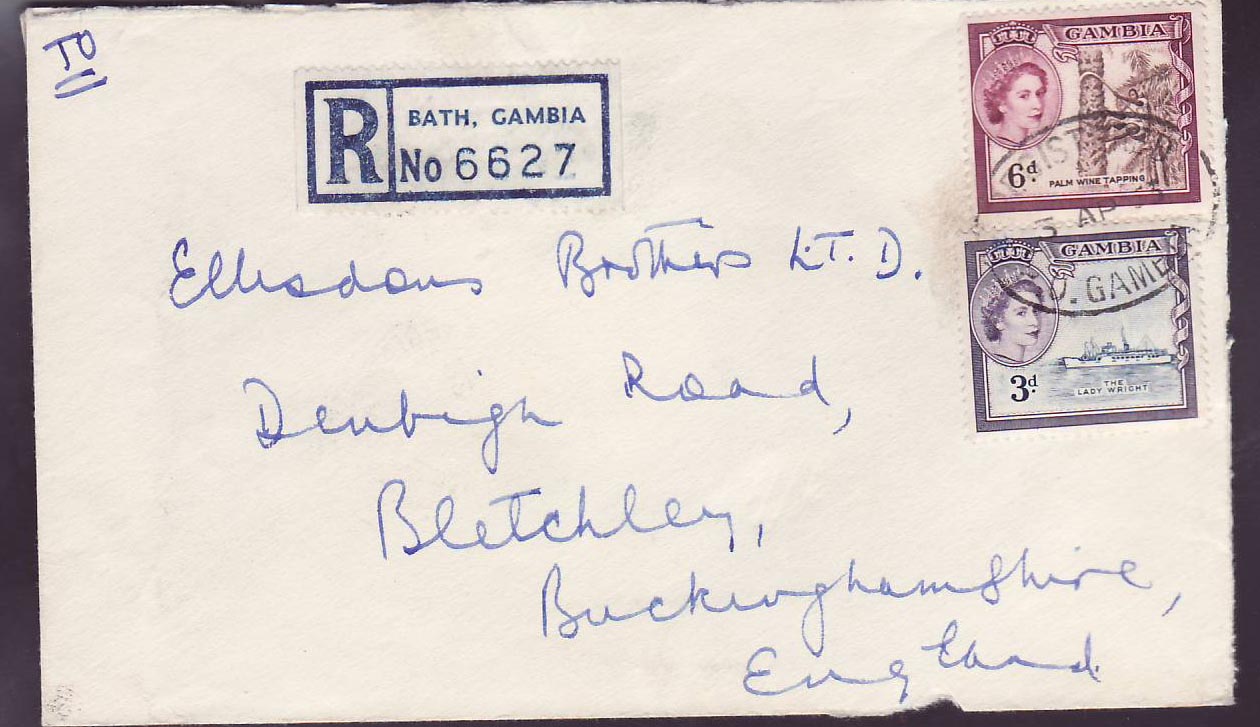 R
BATH, GAMBIA
No 6627
GAMBIA
6d
PALM WINE TAPPING
5 AP
GAMBIA
3d
THE
LADY WRIGHT
Ellisdons Brothers LT. D.
Denbigh Road,
Bletchley,
Buckinghamshire,
England